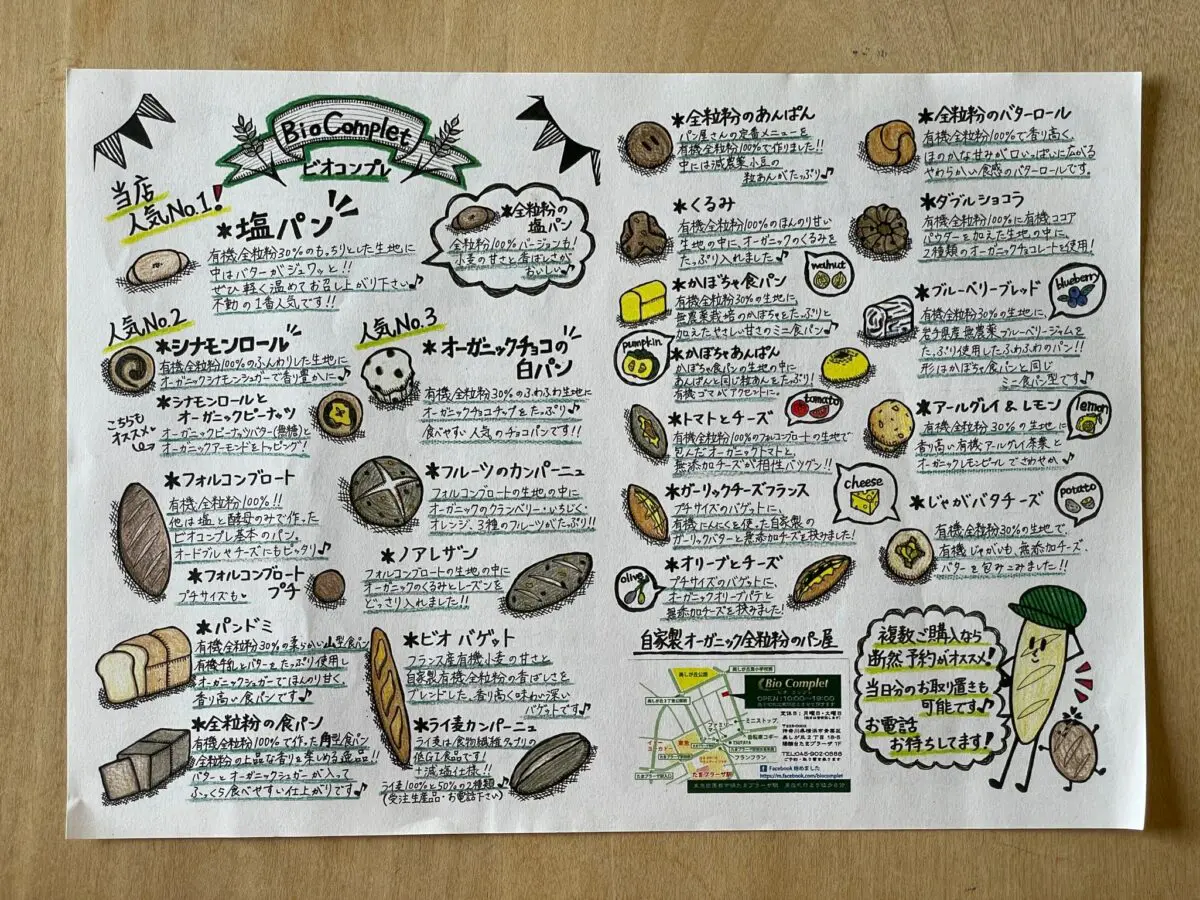 Bio Complet
ビオコンプレ
当店
人気No.1!
*塩パン
有機全粒粉30%のもっちりとした生地に
中はバターがジュワッと!!
ぜひ軽く温めてお召し上がり下さい♪
不動の1番人気です!!
*全粒粉の
塩パン
全粒粉100%バージョンも!
小麦の甘さと香ばしさが
おいしい♪
人気No.2
*シナモンロール
有機全粒粉100%のふんわりした生地に
オーガニックシナモンシュガーで香り豊かに♪
こちらも
オススメ
*シナモンロールと
オーガニックピーナッツ
オーガニックピーナッツバター(無糖)と
オーガニックアーモンドをトッピング!
人気No.3
*オーガニックチョコの
白パン
有機全粒粉30%のふわふわ生地に
オーガニックチョコチップをたっぷり♪
食べやすい人気のチョコパンです!!
*フォルコンブロート
有機全粒粉100%!!
他は塩と酵母のみで作った
ビオコンプレ基本のパン。
オードブルやチーズにもピッタリ♪
*フォルコンブロート
プチ
プチサイズも
*フルーツのカンパーニュ
フォルコンブロートの生地の中に
オーガニックのクランベリー・いちじく・
オレンジ、3種のフルーツがたっぷり!!
*ノアレザン
フォルコンブロートの生地の中に
オーガニックのくるみとレーズンを
どっさり入れました!!
*パンドミ
有機全粒粉30%の柔らかい山型食パン
有機牛乳とバターをたっぷり使用し
オーガニックシュガーでほんのり甘く、
香り高い食パンです♪
*全粒粉の食パン
有機全粒粉100%で作った角型食パン
全粒粉の上品な香りを楽しめる逸品!!
バターとオーガニックシュガーが入って
ふっくら食べやすい仕上がりです♪
*ビオ バゲット
フランス産有機小麦の甘さと
自家製有機全粒粉の香ばしさを
ブレンドした、香り高く味わい深い
バゲットです♪
*ライ麦カンパーニュ
ライ麦は食物繊維タップリの
低GI食品です!
+減塩仕様!!
ライ麦100%と50%の2種類♪
(受注生産品・お電話下さい)
*全粒粉のあんぱん
パン屋さんの定番メニューを
有機全粒粉100%で作りました!!
中には減農薬小豆の
粒あんがたっぷり♪
*くるみ
有機全粒粉100%のほんのり甘い
生地の中に、オーガニックのくるみを
たっぷり入れました♪
walnut
*かぼちゃ食パン
有機全粒粉30%の生地に、
無農薬栽培のかぼちゃをたっぷりと
加えたやさしい甘さのミニ食パン♪
pumpkin
*かぼちゃあんぱん
かぼちゃ食パンの生地の中に
あんぱんと同じ粒あんをたっぷり!
有機ゴマがアクセントに。
tomato
*トマトとチーズ
有機全粒粉100%のフォルコンブロートの生地で
包んだオーガニックトマトと、
無添加チーズが相性バツグン!!
cheese
*ガーリックチーズフランス
プチサイズのバゲットに、
有機にんにくを使った自家製の
ガーリックバターと無添加チーズを挟みました!
olive
*オリーブとチーズ
プチサイズのバゲットに、
オーガニックオリーブパテと
無添加チーズを挟みました!
*全粒粉のバターロール
有機全粒粉100%で香り高く、
ほのかな甘みが口いっぱいに広がる
やわらかい食感のバターロールです。
*ダブルショコラ
有機全粒粉100%に有機ココア
パウダーを加えた生地の中に、
2種類のオーガニックチョコレートを使用!
blueberry
*ブルーベリーブレッド
有機全粒粉30%の生地に、
岩手県産無農薬ブルーベリージャムを
たっぷり使用したふわふわのパン!!
形はかぼちゃ食パンと同じ
ミニ食パン型です♪
*アールグレイ&レモン
lemon
有機全粒粉30%の生地に
香り高い有機アールグレイ茶葉と
オーガニックレモンピールでさわやか♪
*じゃがバタチーズ
potato
有機全粒粉30%の生地で、
有機じゃがいも、無添加チーズ、
バターを包みこみました!!
自家製オーガニック全粒粉のパン屋
Bio Complet
ビオ コンプレ
OPEN:10:00〜19:00
定休日:月曜日・火曜日
ミニストップ
自転車コギー
TSUTAYA
フランフラン
たまプラーザ駅
TEL:045-902-0888
Facebook 始めました
https://m.facebook.com/biocomplet
複数ご購入なら
断然予約がオススメ!
当日分のお取り置きも
可能です♪
お電話
お待ちしてます!